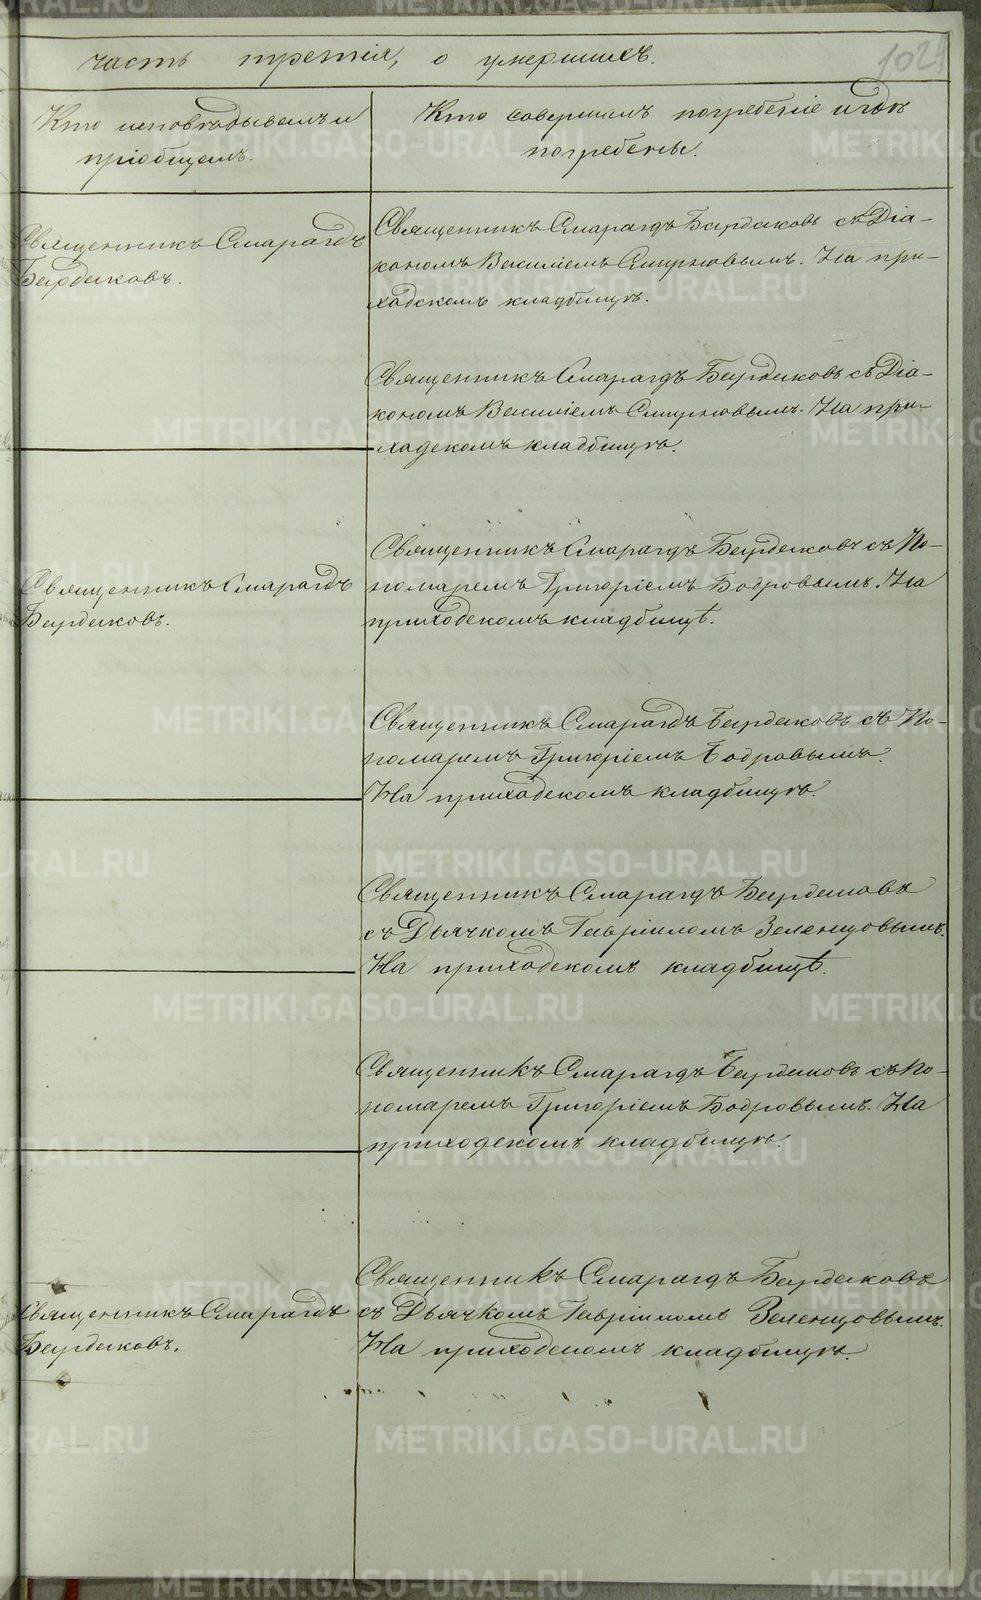 часть третія, о умершихъ.
102
Кто исповѣдывалъ и
пріобщалъ.
Кто совершалъ погребеніе и гдѣ
погребены.
Священникъ Смарагдъ
Бирдюковъ.
Священникъ Смарагдъ Бирдюковъ съ Діа-
кономъ Василіемъ Смирновымъ. На при-
ходскомъ кладбищѣ.
Священникъ Смарагдъ Бирдюковъ съ Діа-
кономъ Василіемъ Смирновымъ. На при-
ходскомъ кладбищѣ.
Священникъ Смарагдъ
Бирдюковъ.
Священникъ Смарагдъ Бирдюковъ съ По-
номаремъ Григоріемъ Бодровымъ. На
приходскомъ кладбищѣ.
Священникъ Смарагдъ Бирдюковъ съ По-
номаремъ Григоріемъ Бодровымъ.
На приходскомъ кладбищѣ.
Священникъ Смарагдъ Бирдюковъ
съ Дьячкомъ Гавріиломъ Зеленцовымъ.
На приходскомъ кладбищѣ.
Священникъ Смарагдъ Бирдюковъ съ По-
номаремъ Григоріемъ Бодровымъ. На
приходскомъ кладбищѣ.
Священникъ Смарагдъ
Бирдюковъ.
Священникъ Смарагдъ Бирдюковъ
съ Дьячкомъ Гавріиломъ Зеленцовымъ.
На приходскомъ кладбищѣ.
METRIKI.GASO-URAL.RU